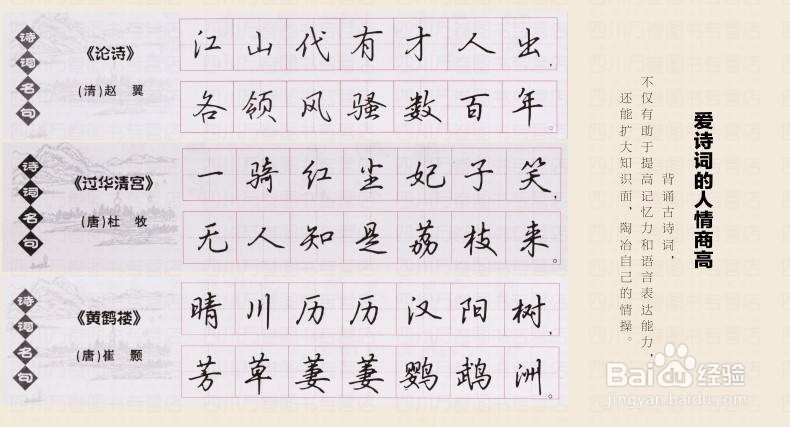 诗词名句
《论诗》
(清)赵 翼
江山代有才人出,
各领风骚数百年。
诗词名句
《过华清宫》
(唐)杜 牧
一骑红尘妃子笑,
无人知是荔枝来。
诗词名句
《黄鹤楼》
(唐)崔 颢
晴川历历汉阳树,
芳草萋萋鹦鹉洲。
爱诗词的人情商高
背诵古诗词,
不仅有助于提高记忆力和语言表达能力,
还能扩大知识面,陶冶自己的情操。
Baidu经验
jingyan.baidu.com